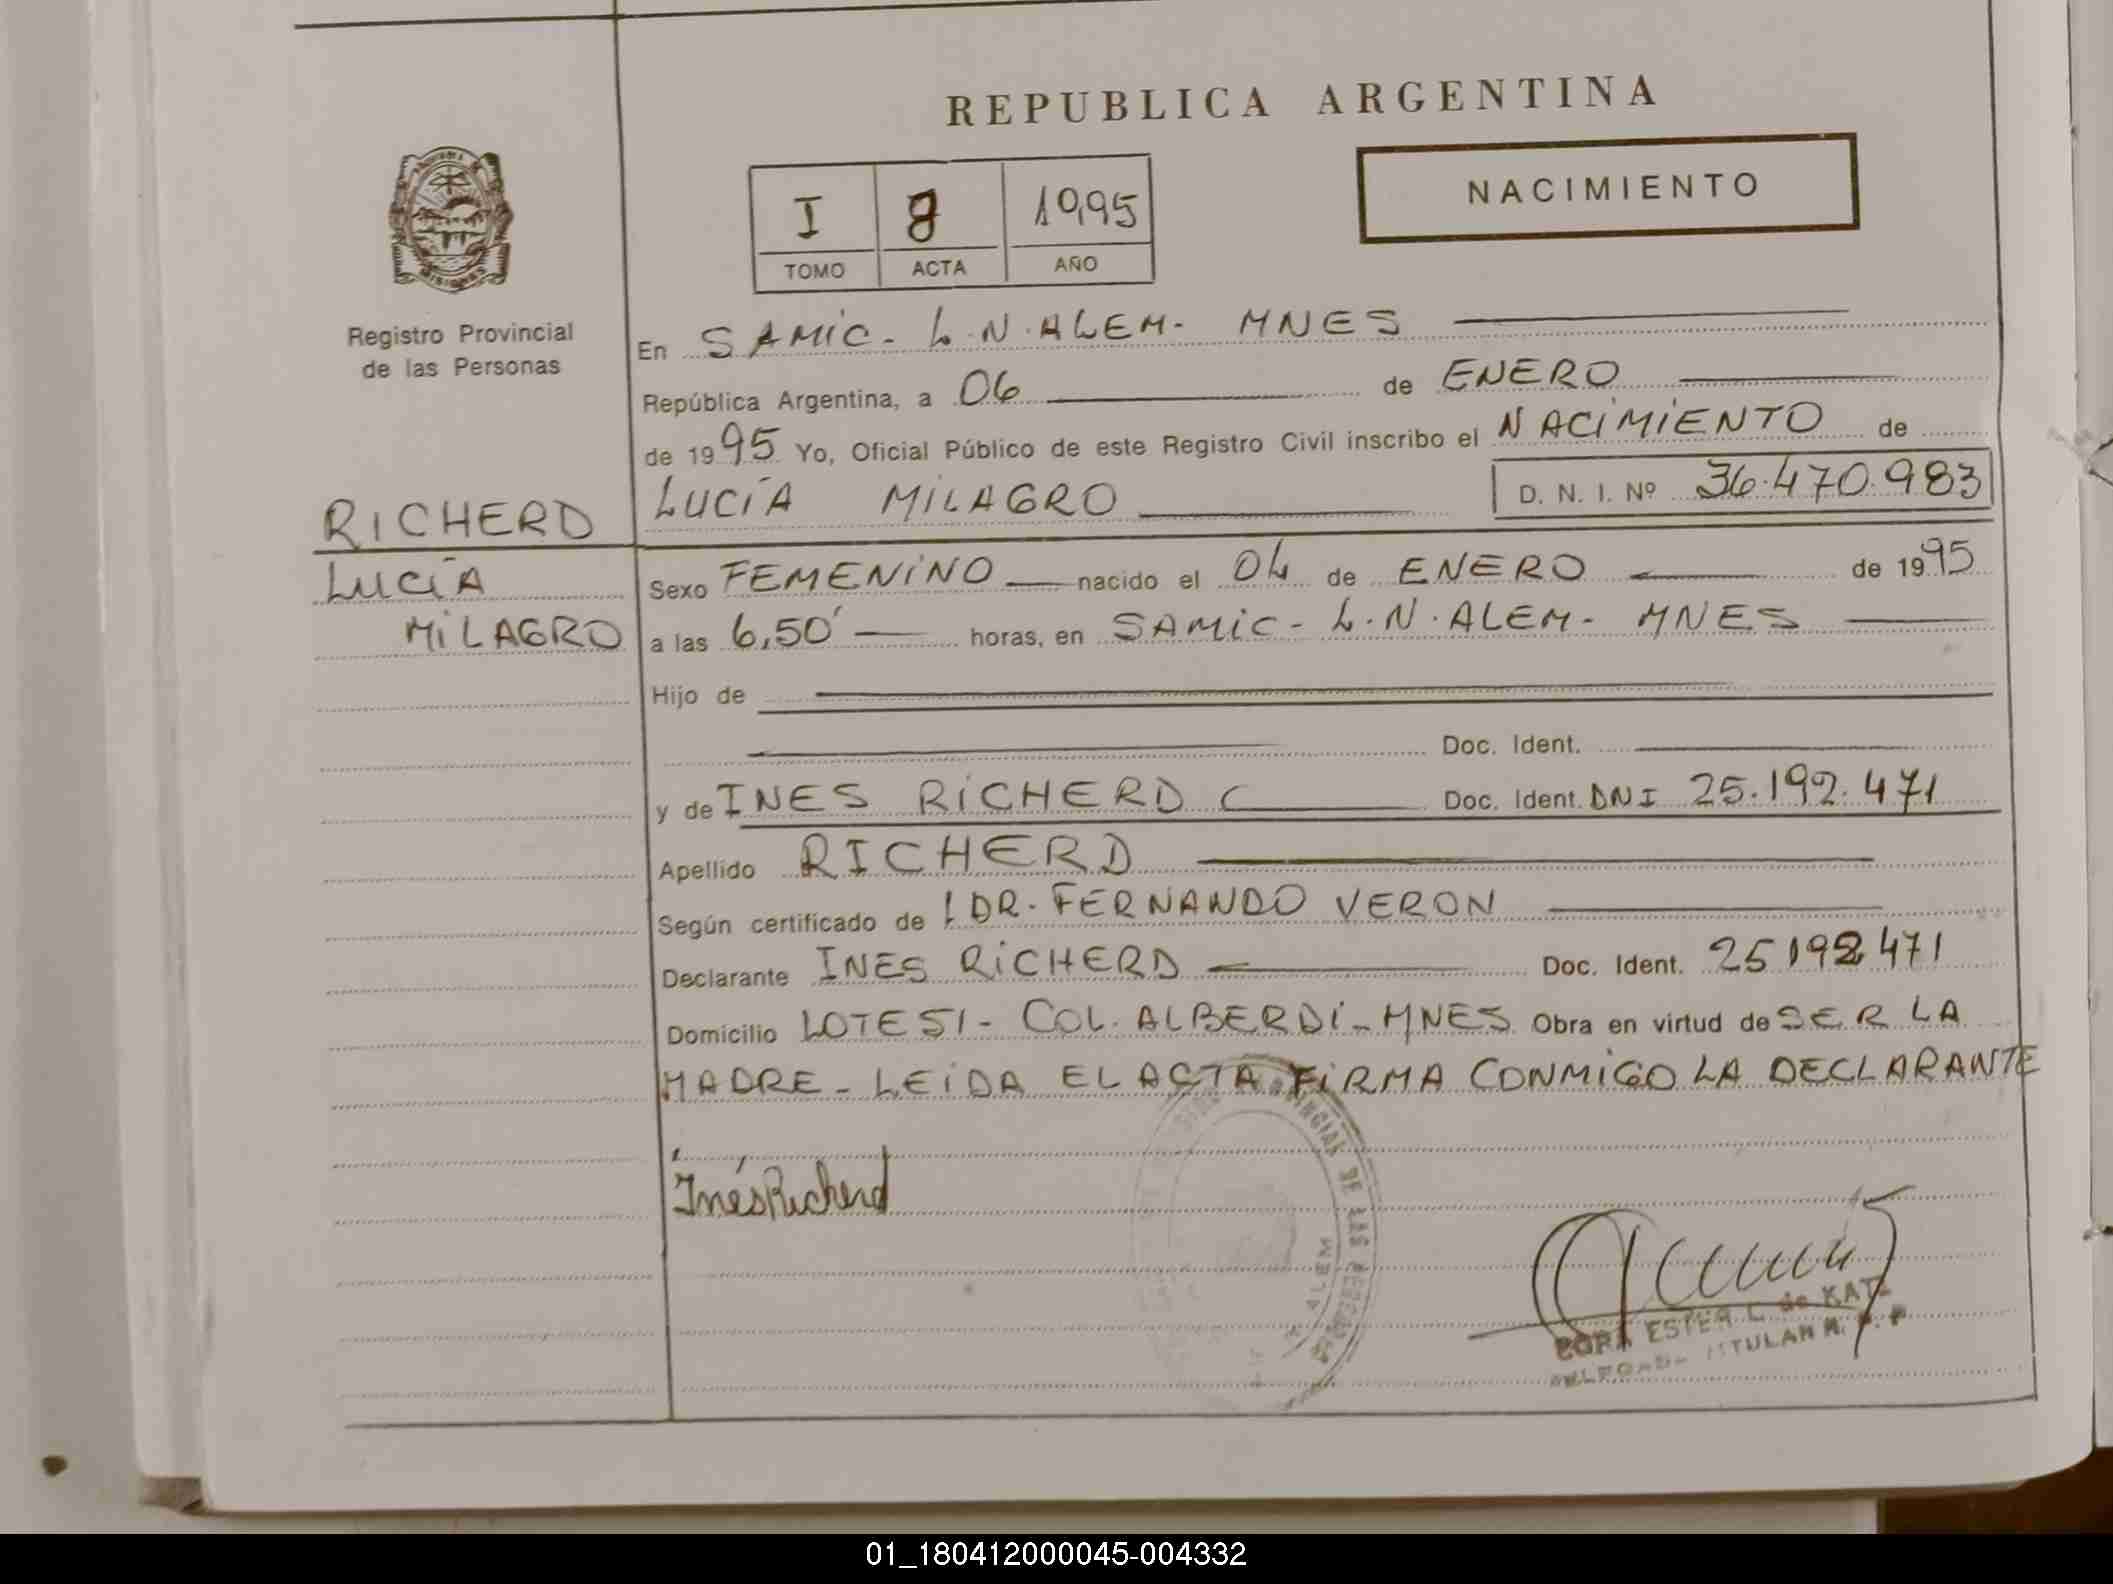 REPUBLICA ARGENTINA
NACIMIENTO
I 8 1995
TOMO ACTA AÑO
Registro Provincial
de las Personas
En SAMIC - L.N. ALEM - MNES
República Argentina, a 06 de ENERO
de 1995 Yo, Oficial Público de este Registro Civil inscribo el NACIMIENTO de
LUCÍA MILAGRO D. N. I. Nº 36.470.983
RICHERD
LUCÍA
MILAGRO
Sexo FEMENINO nacido el 04 de ENERO de 1995
a las 6,50' horas, en SAMIC - L.N. ALEM - MNES
Hijo de
Doc. Ident.
y de INES RICHERD Doc. Ident. DNI 25.192.471
Apellido RICHERD
Según certificado de DR. FERNANDO VERON
Declarante INES RICHERD Doc. Ident. 25192471
Domicilio LOTE 51 - COL. ALBERDI - MNES Obra en virtud de SER LA
MADRE - LEIDA EL ACTA FIRMA CONMIGO LA DECLARANTE
Inés Richerd
ESTER L. de KATZ
TITULAR R. P. P
PROVINCIAL DE LAS PERSONAS
ALEM
01_180412000045-004332